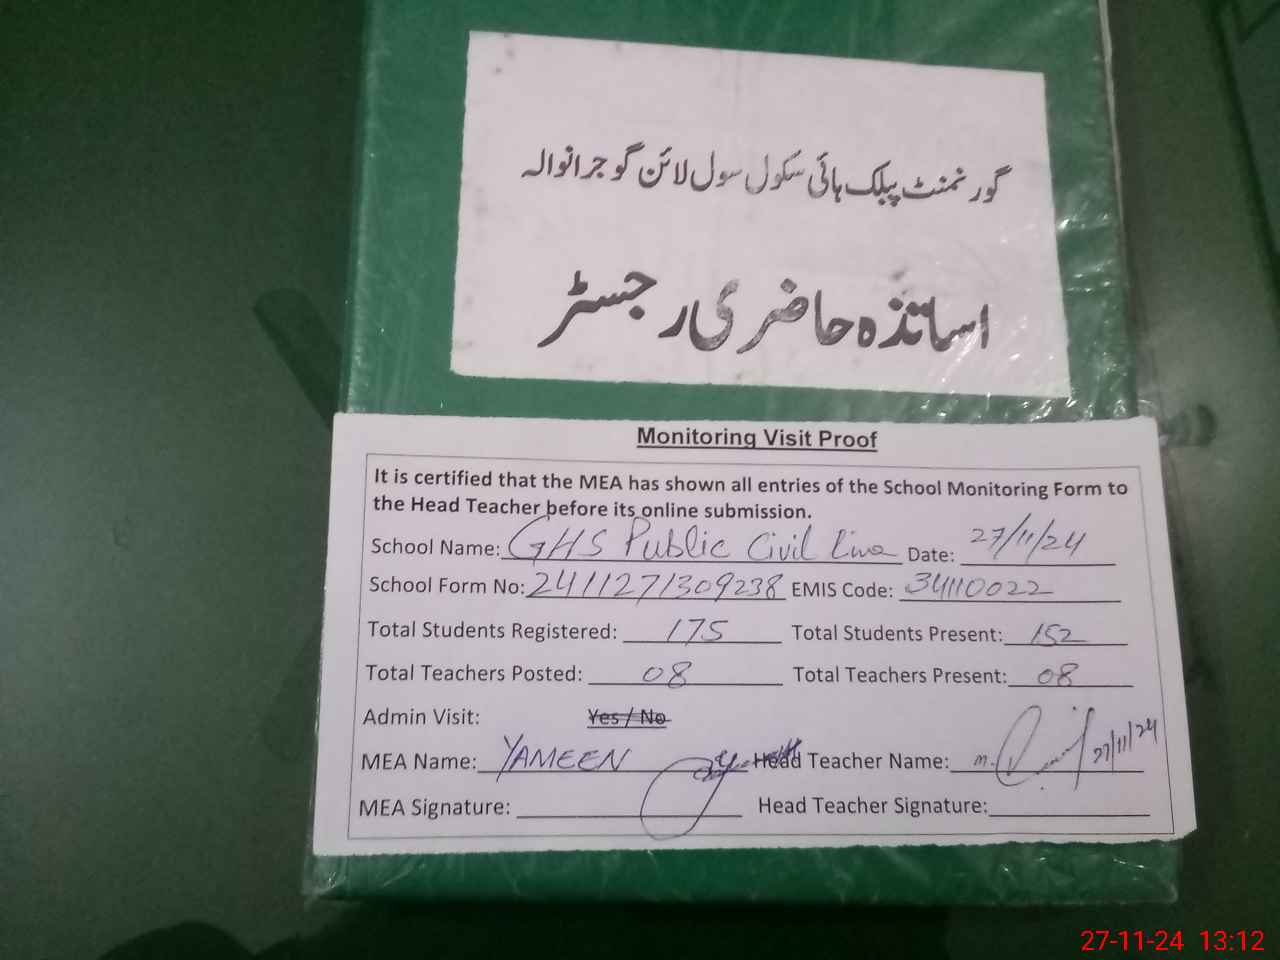 گورنمنٹ پبلک ہائی سکول سول لائن گوجرانوالہ
اساتذہ حاضری رجسٹر
Monitoring Visit Proof
It is certified that the MEA has shown all entries of the School Monitoring Form to
the Head Teacher before its online submission.
School Name: GHS Public Civil Line Date: 27/11/24
School Form No: 2411271309238 EMIS Code: 34110022
Total Students Registered: 175 Total Students Present: 152
Total Teachers Posted: 08 Total Teachers Present: 08
Admin Visit: Yes / No
MEA Name: YAMEEN Head Teacher Name: 27/11/24
MEA Signature: Head Teacher Signature:
27-11-24 13:12